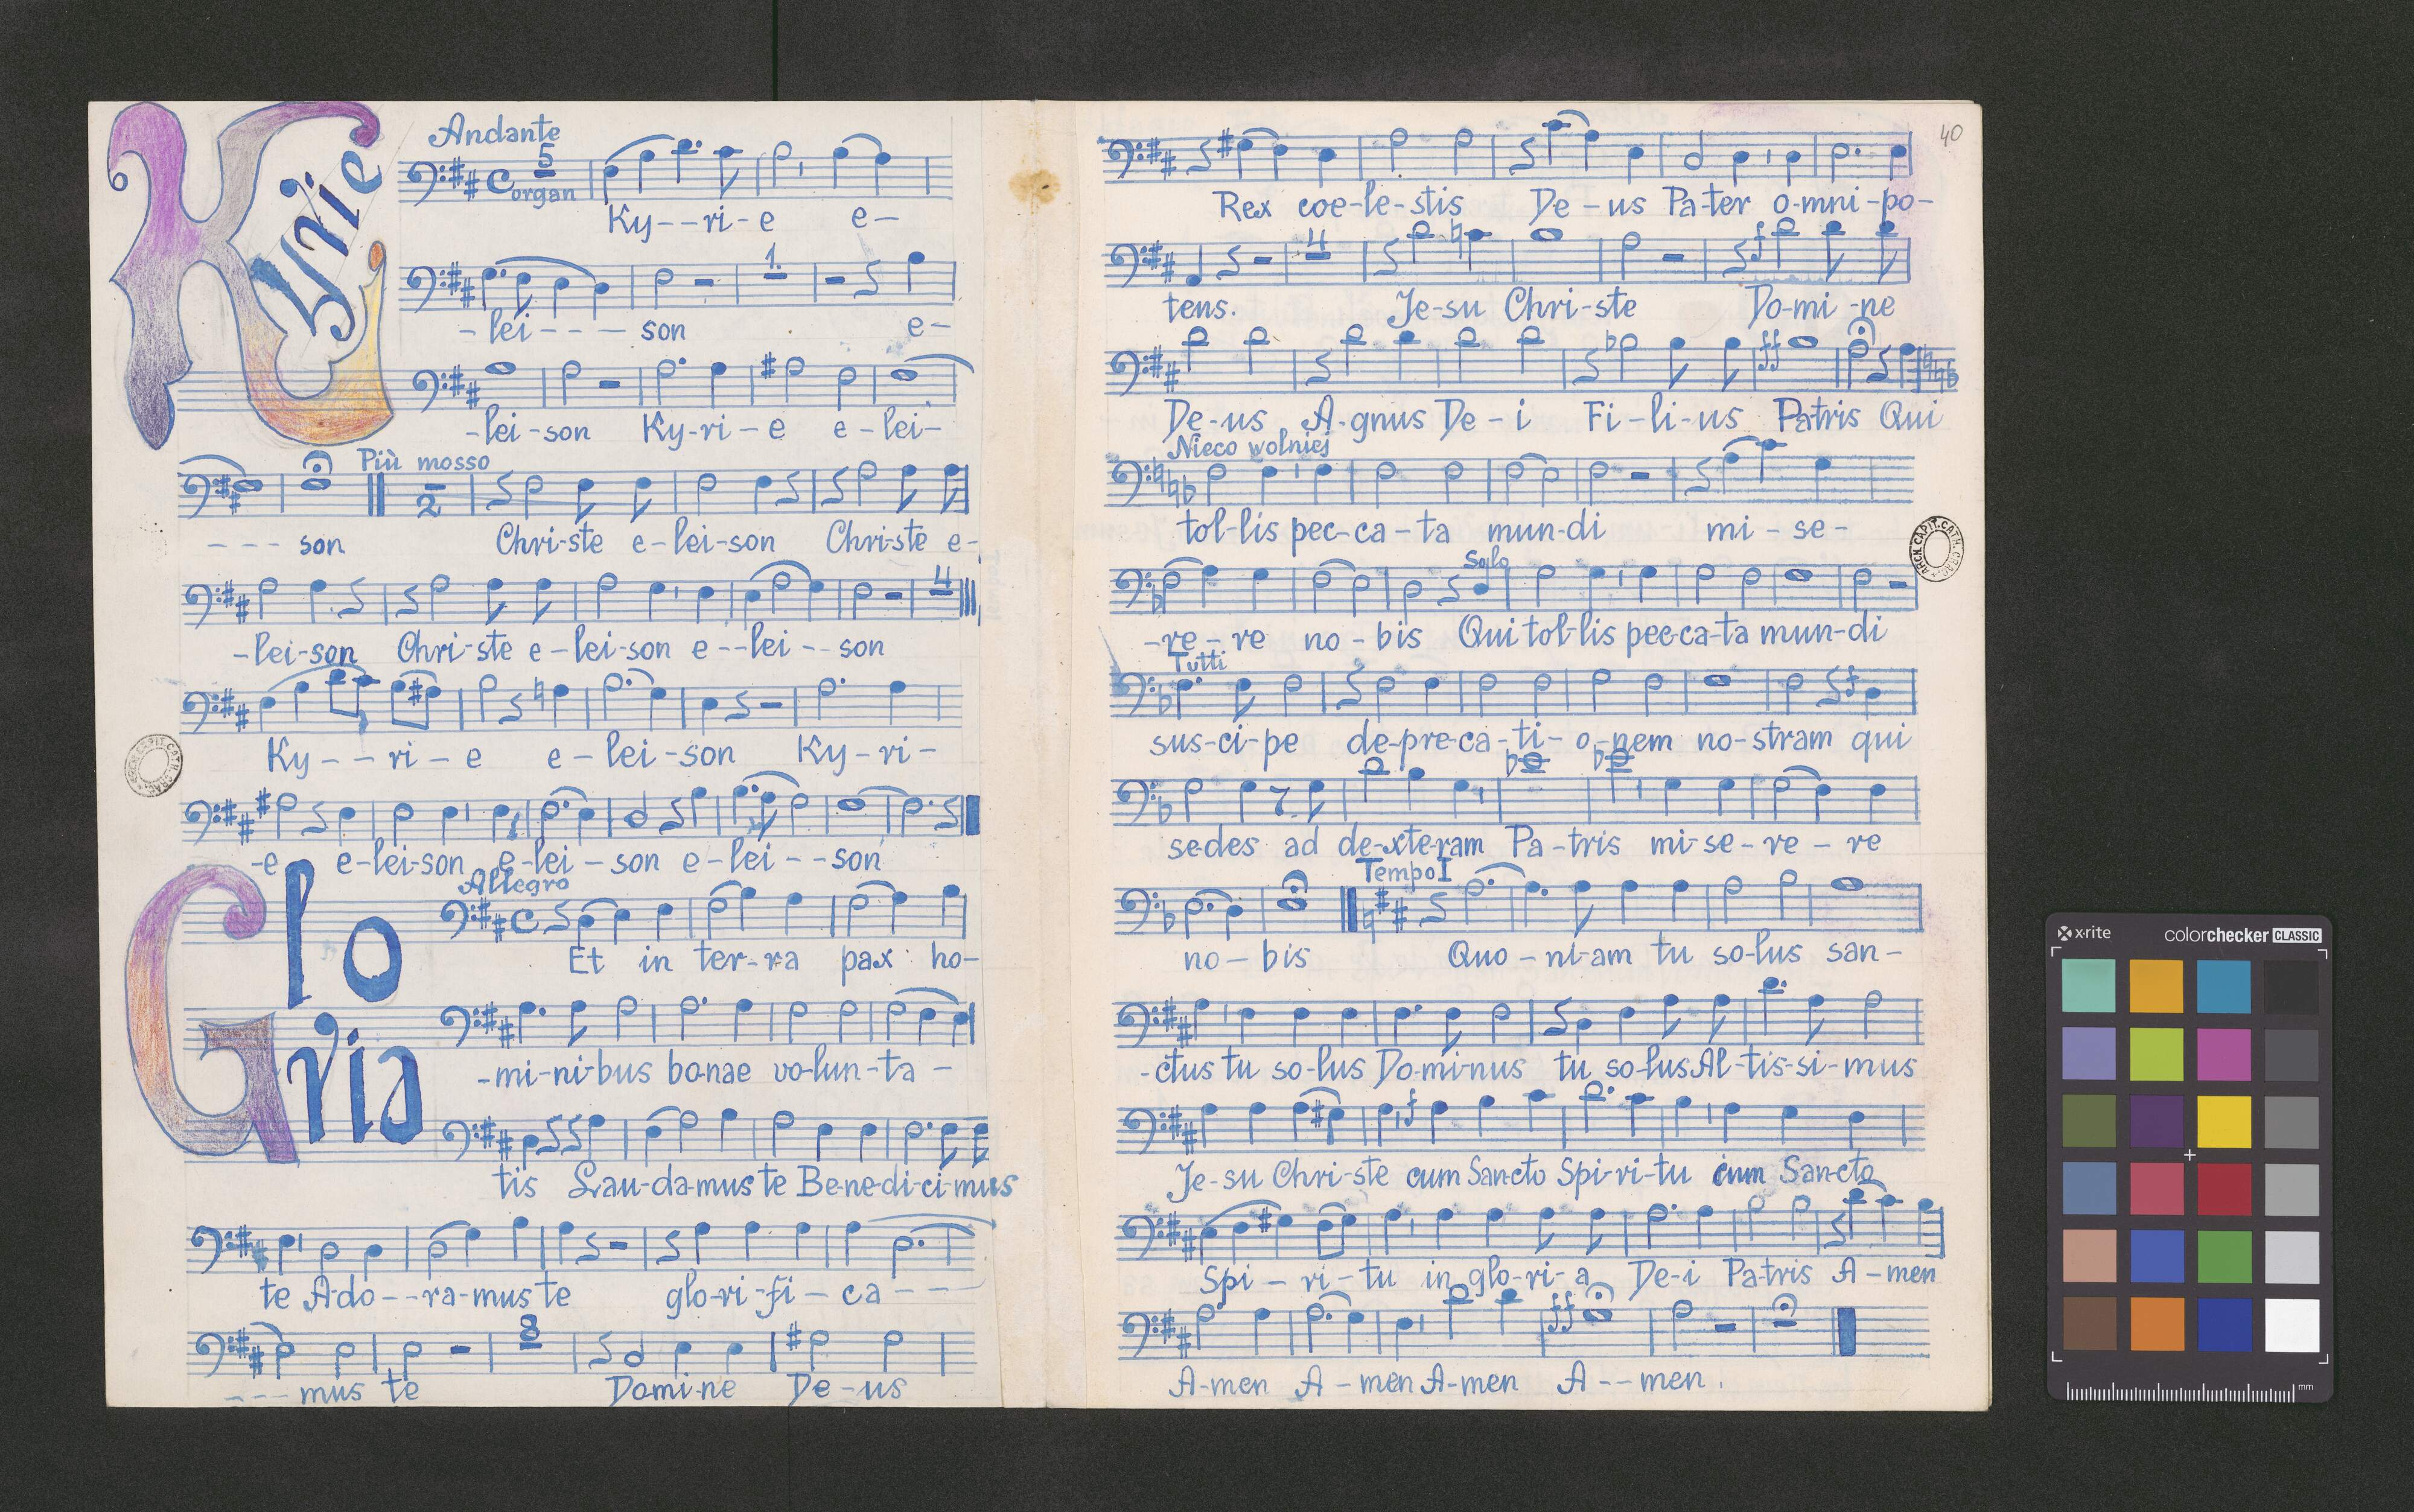 Kyrie
Andante
5
organ
Ky--ri-e e-
1.
-lei--- son e-
-lei-son Ky-ri-e e-lei-
Più mosso
2
--- son Chri-ste e-lei-son Chri-ste e-
4
-lei-son Chri-ste e-lei-son e--lei--son
Ky--ri-e e-lei-son Ky-ri-
-e e-lei-son e-lei-son e-lei--son
Gloria
Allegro
Et in ter-ra pax ho-
-mi-ni-bus bo-nae vo-lun-ta-
tis Lau-da-mus te Be-ne-di-ci-mus
te A-do--ra-mus te glo-ri-fi-ca---
8
---mus te Domi-ne De-us
40
Rex coe-le-stis De-us Pa-ter o-mni-po-
4
f
tens. Je-su Chri-ste Do-mi-ne
ff
De-us A-gnus De-i Fi-li-us Patris Qui
Nieco wolniej
tol-lis pec-ca-ta mun-di mi-se-
Solo
-re-re no-bis Qui tol-lis pec-ca-ta mun-di
Tutti
f
sus-ci-pe de-pre-ca-ti-o-nem no-stram qui
se-des ad de-xte-ram Pa-tris mi-se-re-re
Tempo I
no-bis Quo-ni-am tu so-lus san-
-ctus tu so-lus Do-mi-nus tu so-lus Al-tis-si-mus
f
Je-su Chri-ste cum San-cto Spi-ri-tu cum San-cto
Spi-ri-tu in glo-ri-a De-i Pa-tris A-men
ff
A-men A-men A-men A--men.
ARCH. CAPIT. CATH. CRAC.
ARCH. CAPIT. CATH. CRAC.
x-rite colorchecker CLASSIC
mm